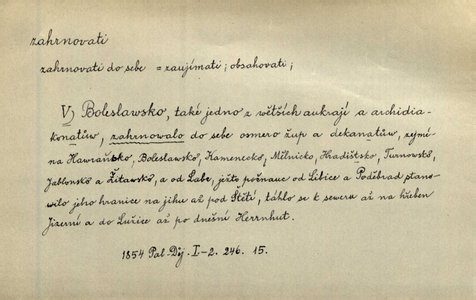 zahrnovati
zahrnovati do sebe = zaujímati; obsahovati;
V) Boleslawsko, také jedno z wětších aukrají a archidia-
konatůw, zahrnowalo do sebe osmero žup a dekanatůw, zejmé-
na Hawraňsko, Boleslawsko, Kamenecko, Mělnicko, Hradištsko, Turnowsko,
Jablonsko a Žitawsko, a od Labe, ježto počnauc od Libice a Poděbrad stano-
wilo jeho hranice na jihu až pod Štětí, táhlo se k seweru až na hřeben
Jizerní a do Lužice až po dnešní Herrnhut.
1854 Pal. Děj. I-2. 246. 15.